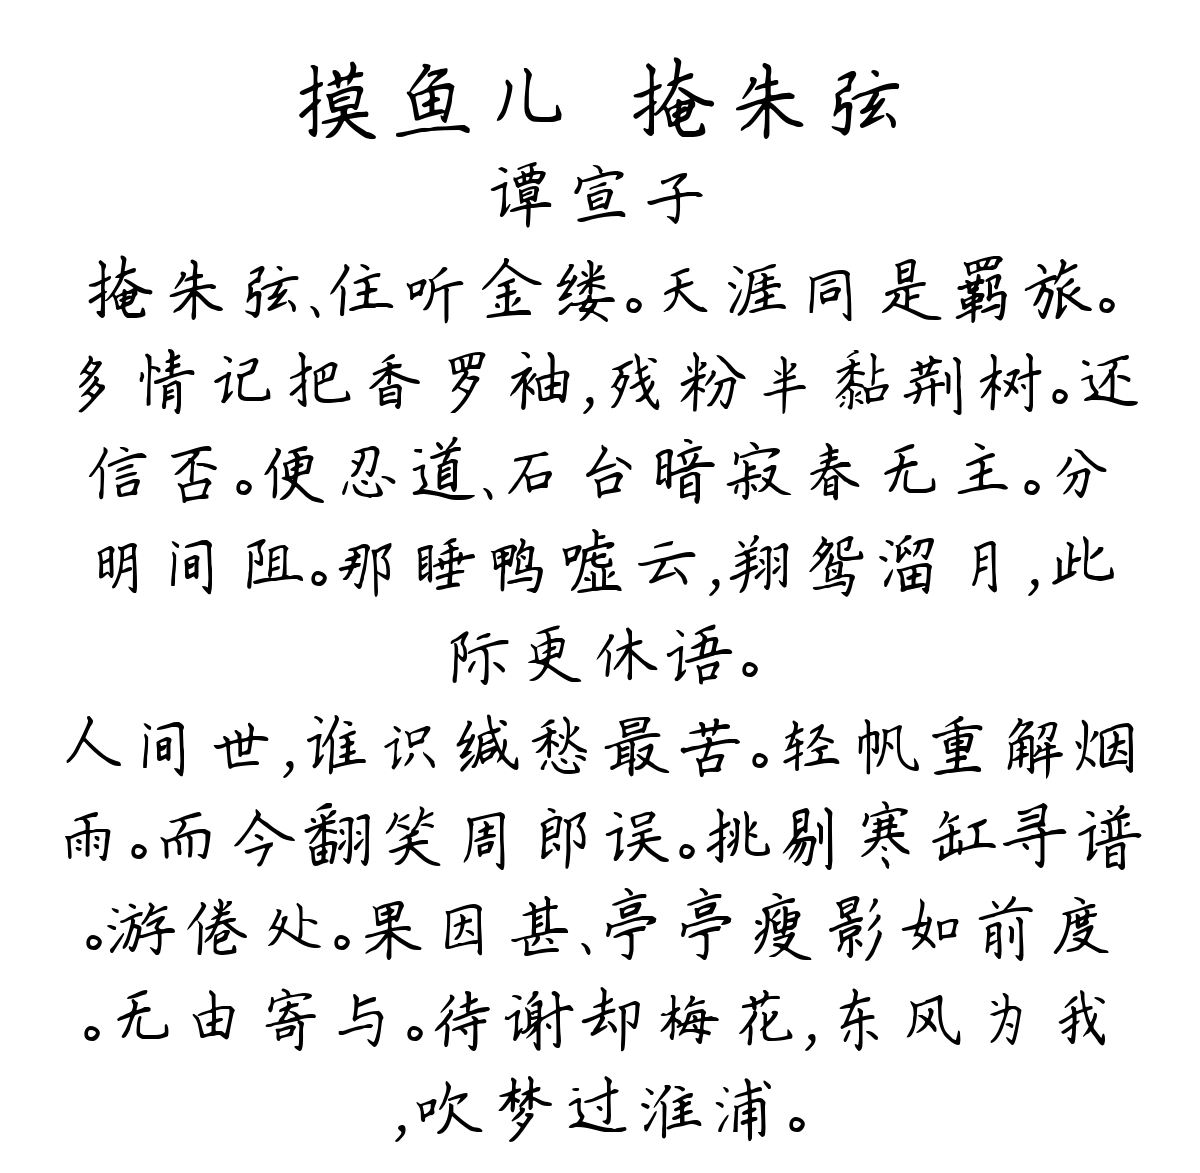 摸鱼儿 掩朱弦
谭宣子
掩朱弦、住听金缕。天涯同是羁旅。
多情记把香罗袖,残粉半黏荆树。还
信否。便忍道、石台暗寂春无主。分
明间阻。那睡鸭嘘云,翔鸳溜月,此
际更休语。
人间世,谁识缄愁最苦。轻帆重解烟
雨。而今翻笑周郎误。挑剔寒缸寻谱
。游倦处。果因甚、亭亭瘦影如前度
。无由寄与。待谢却梅花,东风为我
,吹梦过淮浦。